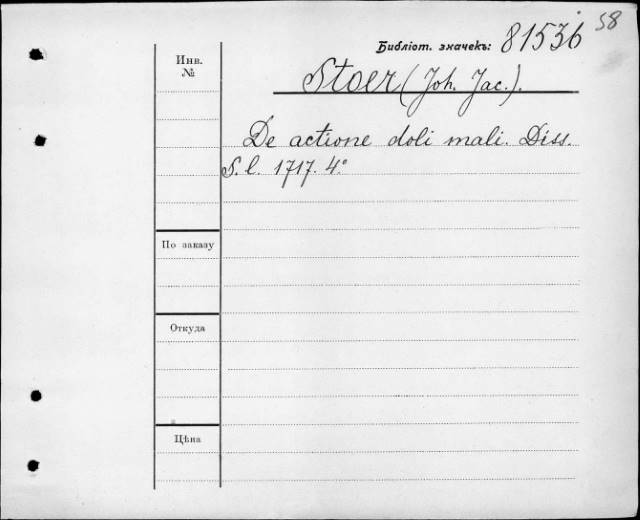 58
Библіот. значекъ: 81536
Инв. №
Stoer (Joh. Jac.).
De actione doli mali. Diss.
S. l. 1717. 4°
По заказу
Откуда
Цѣна